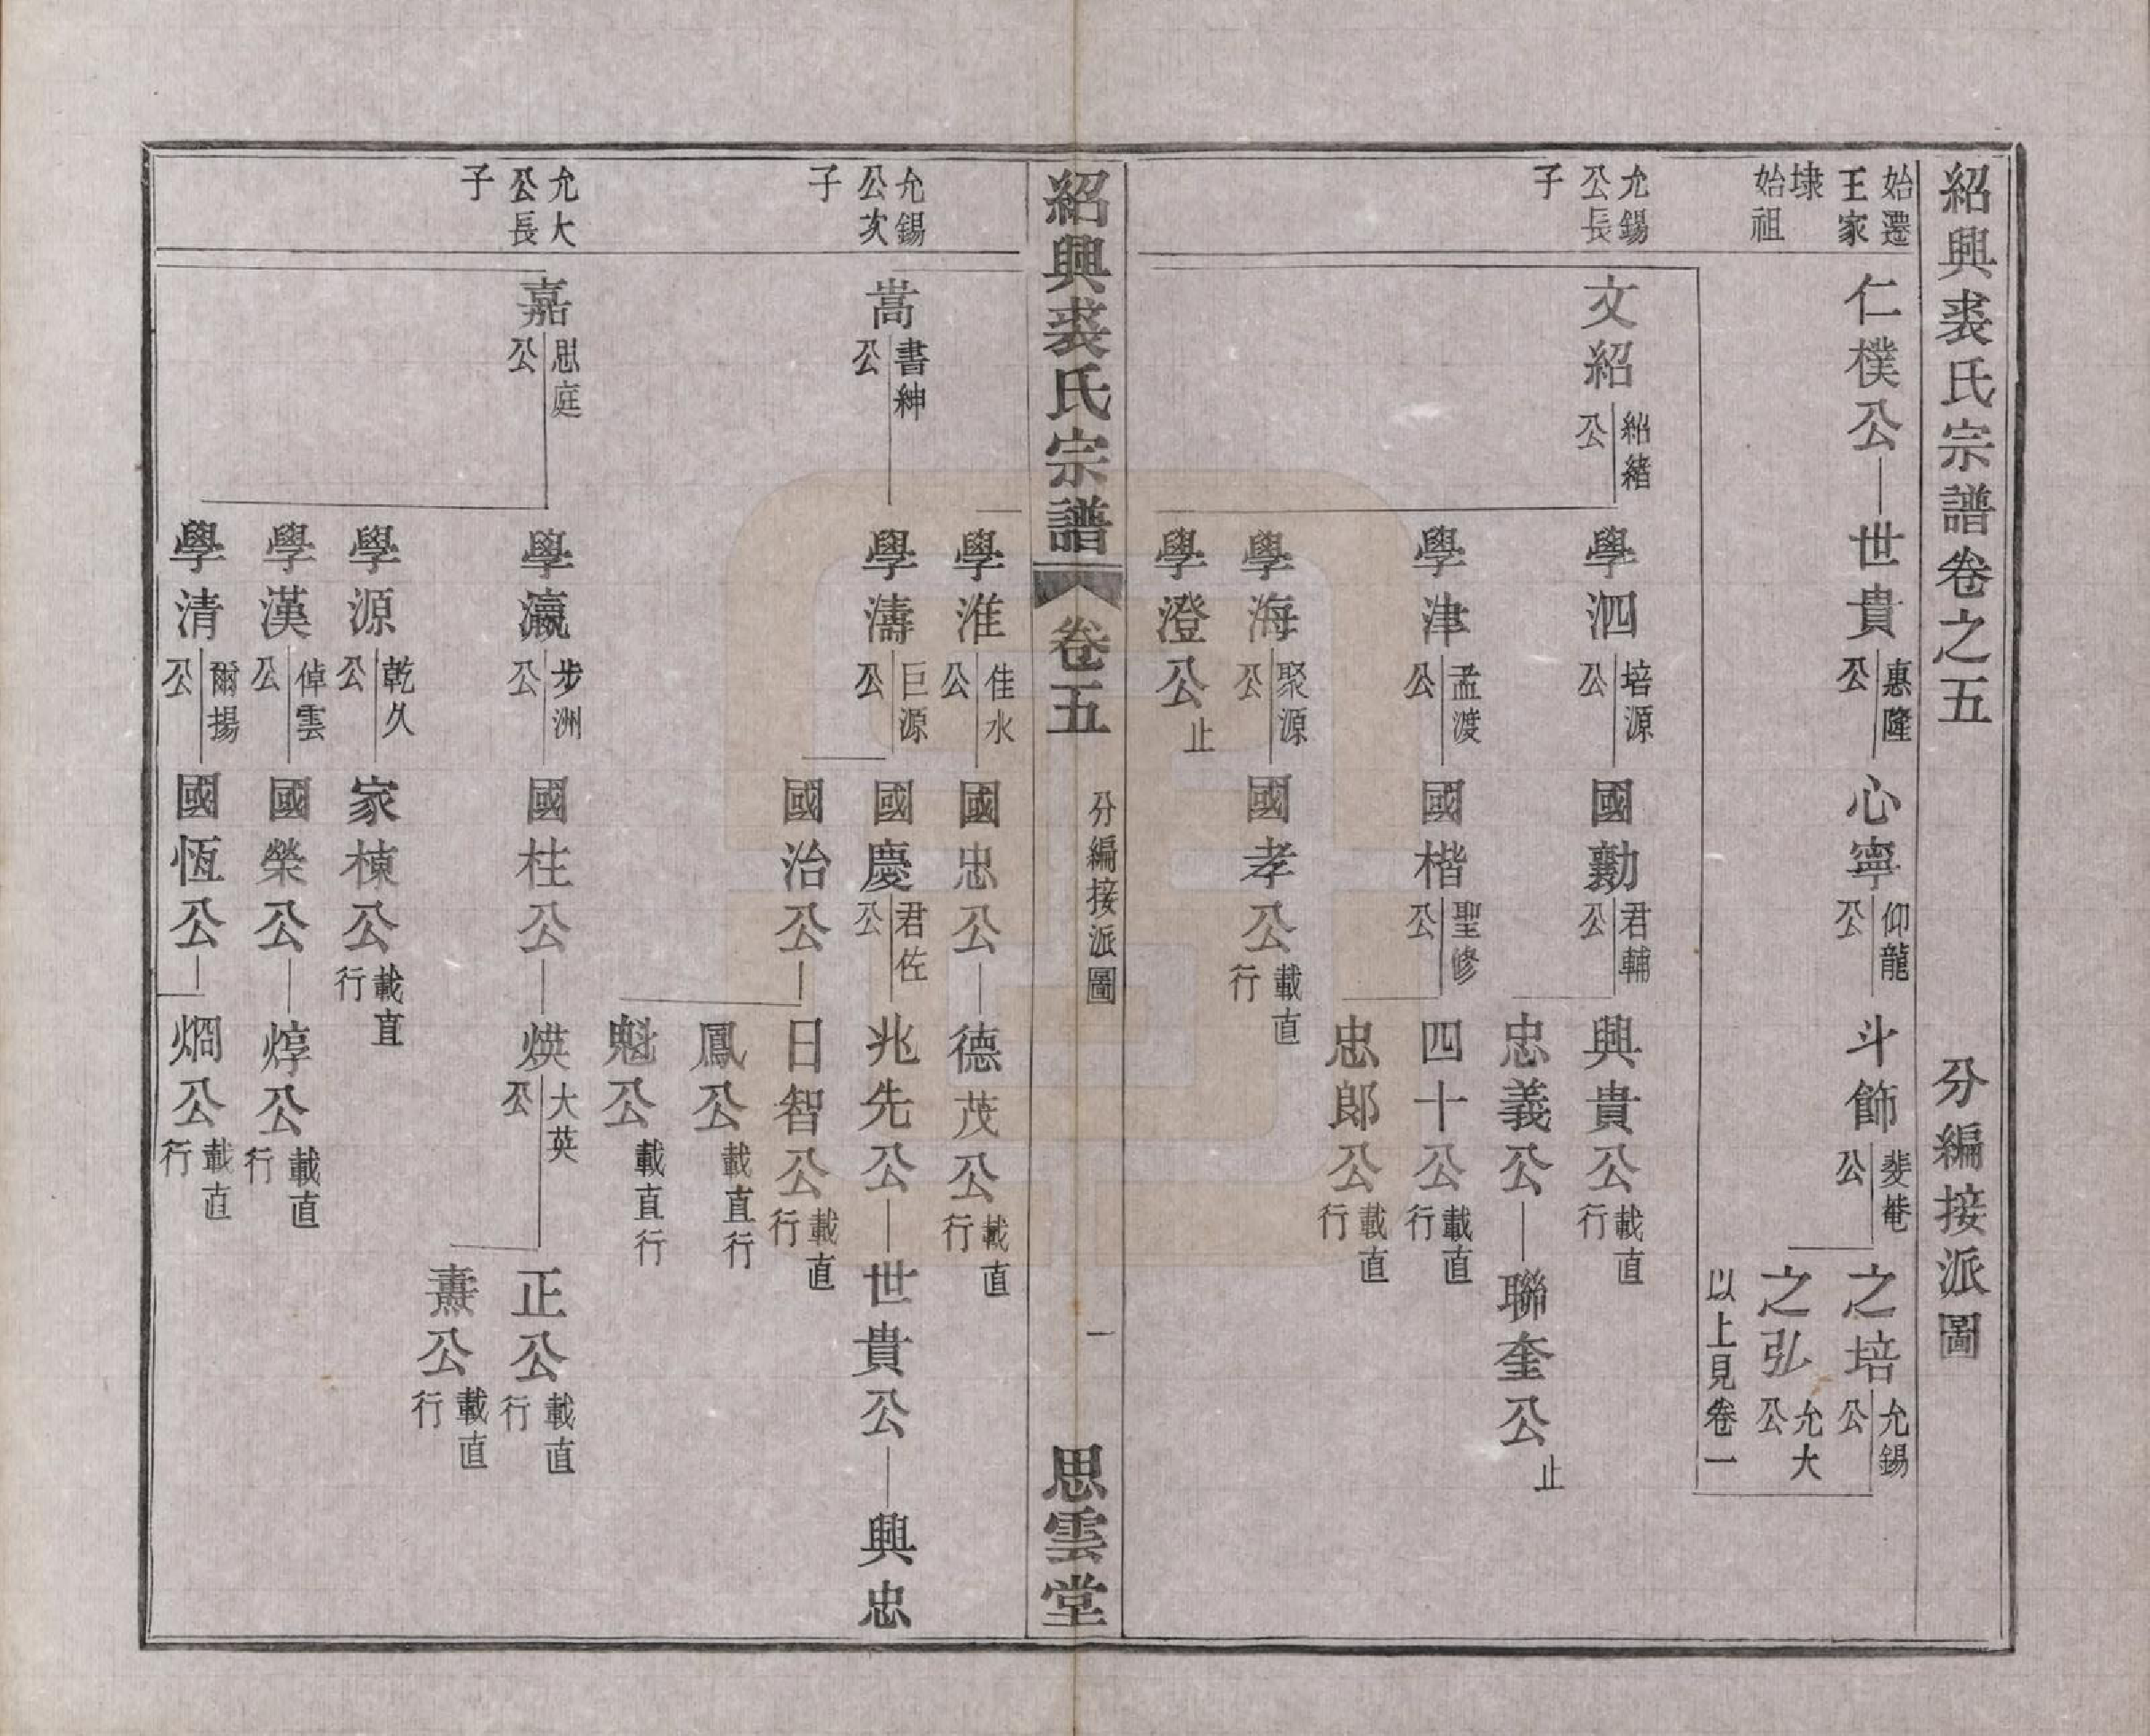 紹興裘氏宗譜卷之五 分編接派圖
始遷王家埭始祖
仁樸公 世貴 惠隆公 心寧 仰龍公 斗飾 斐菴公 之培 允錫公
之弘 允大公
以上見卷一
允錫公長子
文紹 紹緒公 學泗 培源公 國勷 君輔公 興貴公 載直行
忠義公 聯奎公 止
學津 孟渡公 國楷 聖修公 四十公 載直行
忠郎公 載直行
學海 聚源公 國孝公 載直行
學澄公 止
紹興裘氏宗譜 卷五 分編接派圖 一 思雲堂
學淮 佳水公 國忠公 德茂公 載直行
允錫公次子
嵩 書紳公 學濤 巨源公 國慶 君佐公 兆先公 世貴公 興忠
國治公 日智公 載直行
鳳公 載直行
魁公 載直行
允大公長子
嘉 思庭公 學瀛 步洲公 國柱公 煐 大英公 正公 載直行
燾公 載直行
學源 乾久公 家棟公 載直行
學漢 倬雲公 國榮公 焞公 載直行
學清 爾揚公 國恆公 烱公 載直行